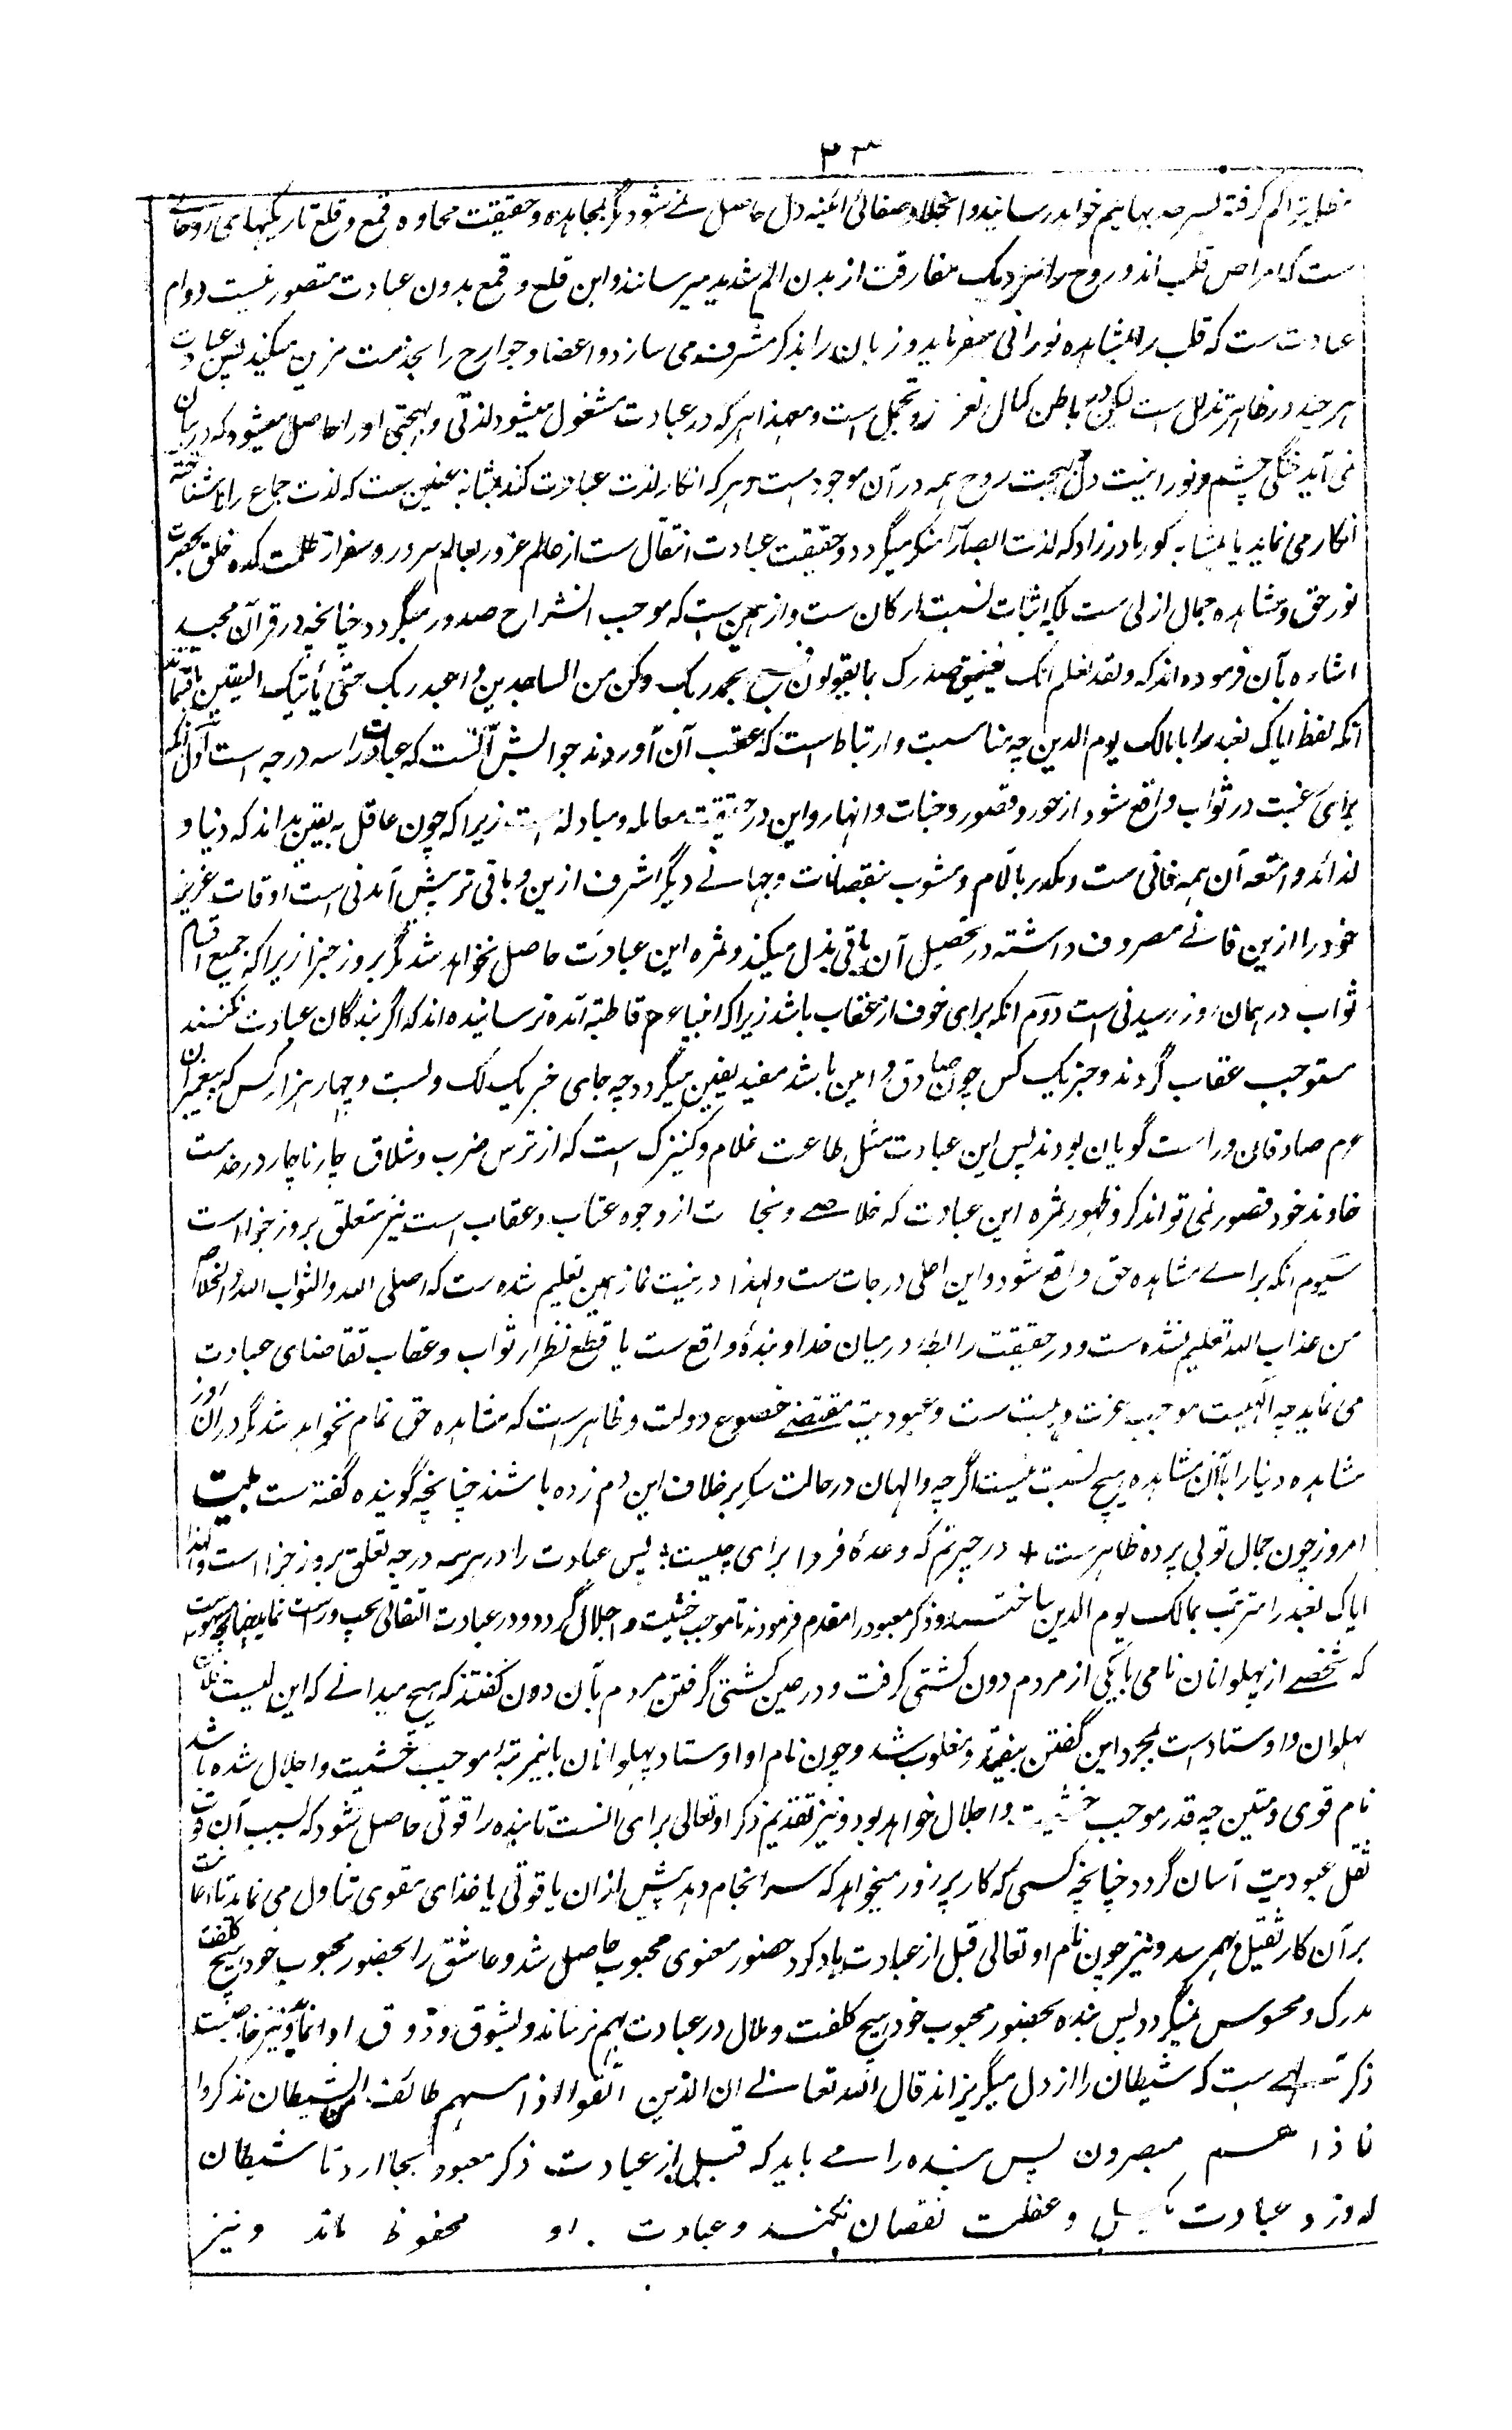 ۳۳
گرفته بسرحد بهایم خواهد رسانید و انجلاء و صفائی آئینه دل حاصل نمے شود مگر بمجاهده و حقیقت مجاهده قمع و قلع تاریکیهای روحانی
ست که امراض قلب اند و روح را نزدیک مفارقت از بدن الم شدید میرسانند و این قلع و قمع بدون عبادت متصور نیست دوام
عبادت ست که قلب را بمشاهده نورانی میفرماید و زبان را بذکر مشرف می سازد و اعضا و جوارح را بخدمت مزین میکند پس عبادت
هر چند در ظاهر تذلل است لیکن در باطن کمال تعزز و تجمل است و معهذا هر که در عبادت مشغول میشود لذتی و بهجتی او را حاصل میشود که در بیان
نمی آید خنکی چشم و نورانیت دل و بهجت روح همه در آن موجود است و هر که انکار لذت عبادت کند بمثابه عنین ست که لذت جماع را ناشناخته
انکار می نماید یا بمثابه کور مادرزاد که لذت ابصار را منکر میگردد و حقیقت عبادت انتقال ست از عالم غرور بعالم سرور و سفر از ظلمت کده خلق بحضرت
نور حق و مشاهده جمال ازلی ست بلکه اثبات نسبت ارکان ست و از همین ست که موجب انشراح صدور میگردد چنانچه در قرآن مجید
اشاره بآن فرموده اند که ولقد نعلم انک یضیق صدرک بما یقولون فسبح بحمد ربک وکن من الساجدین واعبد ربک حتی یأتیک الیقین باقیماند
آنکه لفظ ایاک نعبد را با مالک یوم الدین چه مناسبت و ارتباط است که عقب آن آوردند جوابش آنست که عبادت را سه درجه است اول آنکه
برای رغبت در ثواب واقع شود از حور و قصور و جنات و انهار و این در حقیقت معامله و مبادله است زیرا که چون عاقل به یقین بداند که دنیا و
لذائذ و امتعه آن همه فانی ست و مکدر بآلام و مشوب بنقصانات و جهانے دیگر اشرف ازین و باقی تر پیش آمدنی است اوقات عزیز
خود را ازین فانے مصروف داشته در تحصیل آن باقی بذل میکند و ثمره این عبادت حاصل نخواهد شد مگر بروز جزا زیرا که جمیع اقسام
ثواب در همان روز رسیدنی است دوم آنکه برای خوف از عقاب باشد زیرا که انبیاء عم قاطبة آمده ترسانیده اند که اگر بندگان عبادت نکنند
مستوجب عقاب گردند و خبر یک کس چون صادق و امین باشد مفید یقین میگردد چه جای خبر یک لک و بست و چهار هزار کس که پیغمبران
عم صادقان و راست گویان بودند پس این عبادت مثل طاعت غلام و کنیزک است که از ترس ضرب و شلاق چار ناچار در خدمت
خاوند خود قصور نمی تواند کرد و ظهور ثمره این عبادت که خلاصے و نجات از وجوه عتاب و عقاب است نیز متعلق بروز جزا است
سیوم آنکه برائے مشاهده حق واقع شود و این اعلی درجات ست و لهذا در نیت نماز همین تعلیم شده ست که اصلی لله و الثواب لله و الخلاص
من عذاب الله تعلیم نشده ست و در حقیقت رابطه درمیان خدا و بنده واقع ست با قطع نظر از ثواب و عقاب تقاضای عبادت
می نماید چه الهیت موجب عزت و هیبت ست و عبودیت مقتضے خضوع و ذلت و ظاهر است که مشاهده حق تمام نخواهد شد مگر در آن روز
مشاهده دنیا را با آن مشاهده هیچ نسبت نیست اگرچه والهان در حالت سکر بر خلاف این دم زده باشند چنانچه گوینده گفته ست بیت
امروز چون جمال تو بی پرده ظاهرست + در حیرتم که وعدهٔ فردا برای چیست ؛ پس عبادت را در هر سه درجه تعلق بروز جزا است و لهذا
ایاک نعبد را مترتب بمالک یوم الدین ساختند و ذکر معبود را مقدم فرمودند تا موجب خشیت و اجلال گردد و در عبادت التفاتی بچپ و راست ننماید
که شخصے از پهلوانان نامی با یکی از مردم دون کشتی گرفت و در عین کشتی گرفتن مردم بآن دون گفتند که هیچ میدانے که این کیست فلان
پهلوان و اوستاد است بمجرد این گفتن بیفتاد و مغلوب شد و چون نام او اوستاد پهلوانان باین مرتبه موجب خشیت و اجلال شده باشد
نام قوی و متین چه قدر موجب خشیت و اجلال خواهد بود و نیز تقدیم ذکر او تعالی برای آنست تا بنده را قوتی حاصل شود که بسبب آن قوت
ثقل عبودیت آسان گردد چنانچه کسی که کار پر زور میخواهد که سرانجام دهد پیش از آن یاقوتی یا غذای مقوی تناول می نماید تا اعانت
بر آن کار ثقیل بهم رسد و نیز چون نام او تعالی قبل از عبادت یاد کرد حضور معنوی محبوب حاصل شد و عاشق را بحضور محبوب خود هیچ کلفت
مدرک و محسوس نمیگردد پس بنده بحضور محبوب خود هیچ کلفت و ملال در عبادت بهم نرساند و بشوق و ذوق ادا نماید و نیز خاصیت
ذکر الهے ست که شیطان را از دل میگریزاند قال الله تعالے ان الذین اتقوا اذا مسهم طائف من الشیطان تذکروا
فاذا هم مبصرون پس بنده را مے باید که قبل از عبادت ذکر معبود بجا آرد تا شیطان
عبادت و غفلت نقصان نکند و عبادت او محفوظ ماند و نیز